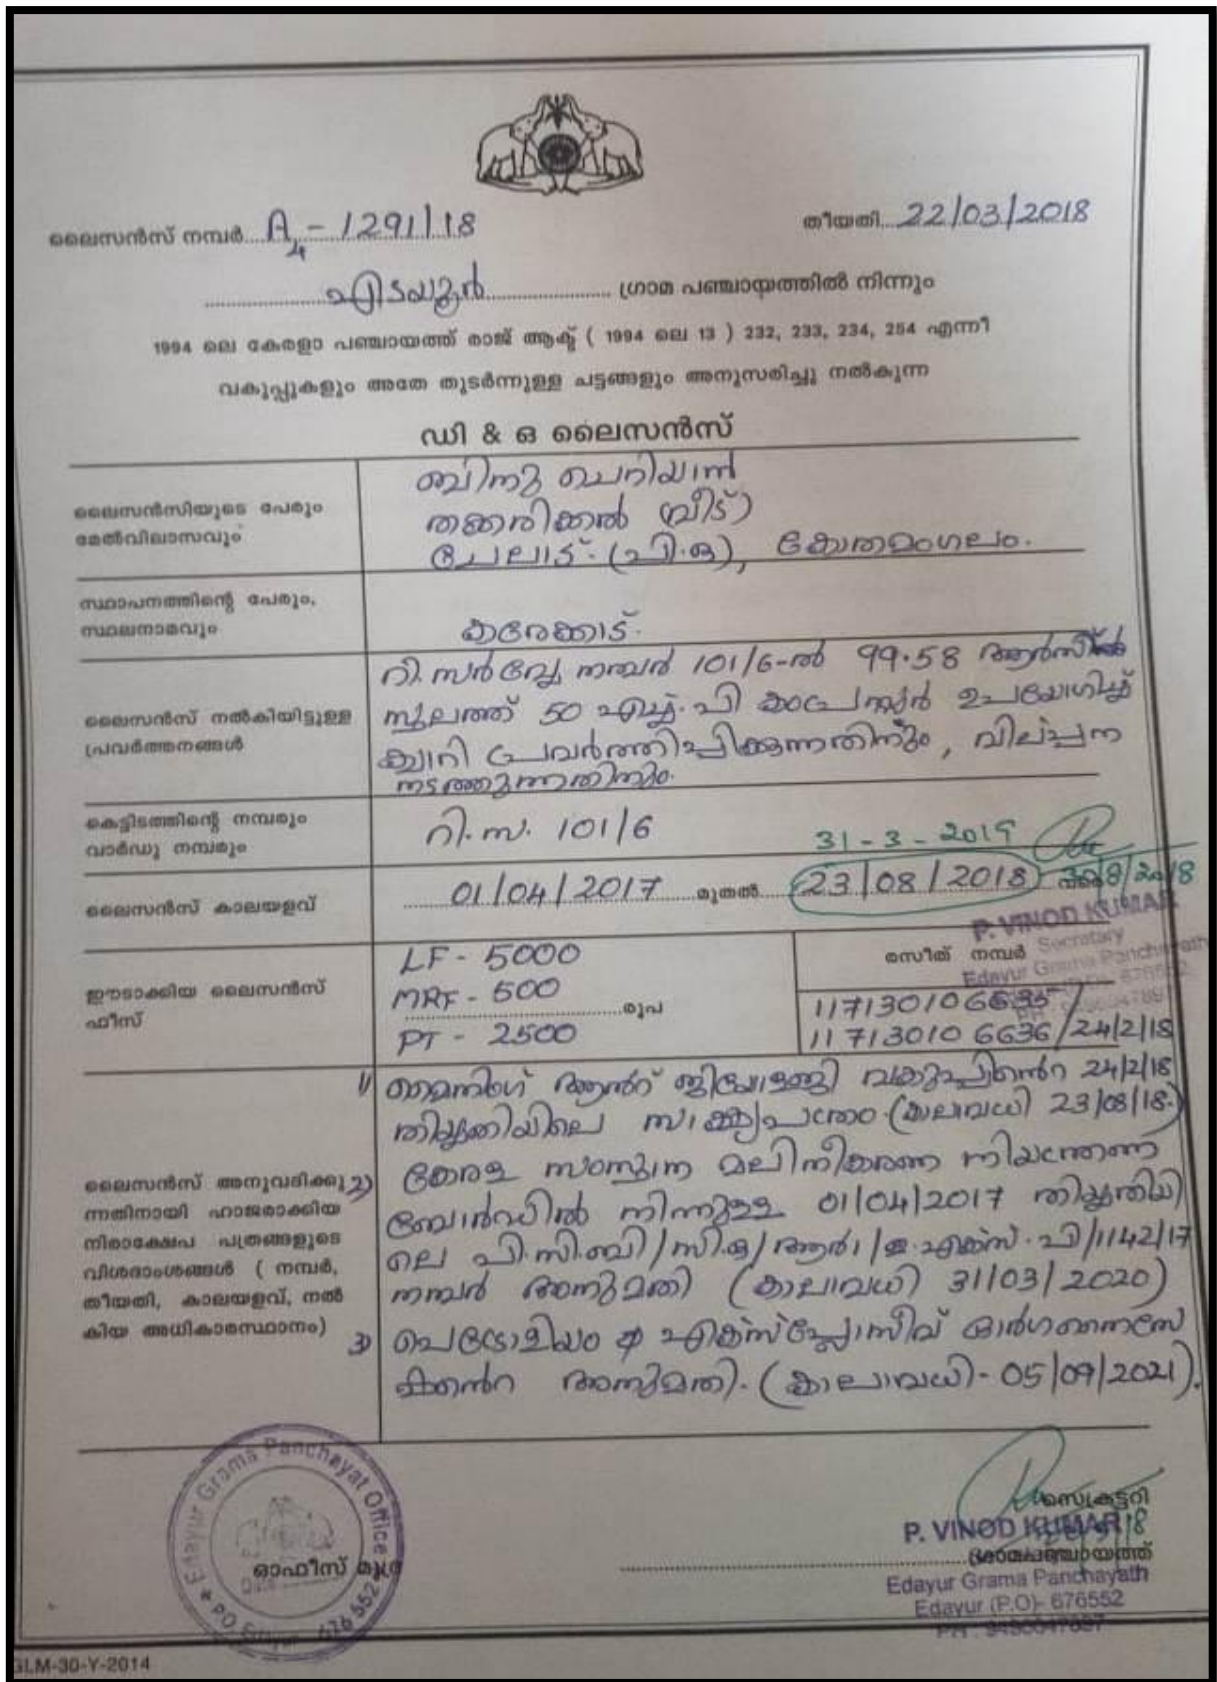 ലൈസൻസ് നമ്പർ A4 - 1291/18
തീയതി 22/03/2018
എടയൂർ ഗ്രാമ പഞ്ചായത്തിൽ നിന്നും
1994 ലെ കേരളാ പഞ്ചായത്ത് രാജ് ആക്ട് ( 1994 ലെ 13 ) 232, 233, 234, 254 എന്നീ
വകുപ്പുകളും അതേ തുടർന്നുള്ള പട്ടങ്ങളും അനുസരിച്ചു നൽകുന്ന
ഡി & ഒ ലൈസൻസ്
ലൈസൻസിയുടെ പേരും
മേൽവിലാസവും
ബിനു ചെറിയാൻ
തക്കരിക്കൽ (വീട്)
(പി.ഒ), കോതമംഗലം.
സ്ഥാപനത്തിന്റെ പേരും,
സ്ഥലനാമവും
കരേക്കാട്.
ലൈസൻസ് നൽകിയിട്ടുള്ള
പ്രവർത്തനങ്ങൾ
റി. സർവ്വേ നമ്പർ 101/6-ൽ 99.58 ആർസ്
സ്ഥലത്ത് 50 എച്ച്.പി കംപ്രസ്സർ ഉപയോഗിച്ച്
ക്വാറി പ്രവർത്തിപ്പിക്കുന്നതിനും, വില്പന
നടത്തുന്നതിനും.
കെട്ടിടത്തിന്റെ നമ്പരും
വാർഡു നമ്പരും
റി.സ. 101/6
31-3-2019
ലൈസൻസ് കാലയളവ്
01/04/2017 മുതൽ 23/08/2018 വരെ
P. VINOD KUMAR
Secretary
Edayur Grama Panchayath
ഈടാക്കിയ ലൈസൻസ്
ഫീസ്
LF - 5000
MRF - 500
രൂപ
PT - 2500
രസീത് നമ്പർ
117130106635/
117130106636/24/2/18
ലൈസൻസ് അനുവദിക്കു
ന്നതിനായി ഹാജരാക്കിയ
നിരാക്ഷേപ പത്രങ്ങളുടെ
വിശദാംശങ്ങൾ ( നമ്പർ,
തീയതി, കാലയളവ്, നൽ
കിയ അധികാരസ്ഥാനം)
1) മൈനിംഗ് ആന്റ് ജിയോളജി വകുപ്പിന്റെ 24/2/18
തിയ്യതിയിലെ സാക്ഷ്യപത്രം (കാലാവധി 23/08/18.)
2) കേരള സംസ്ഥാന മലിനീകരണ നിയന്ത്രണ
ബോർഡിൽ നിന്നുള്ള 01/04/2017 തിയ്യതിയി
ലെ പി.സി.ബി/സി.ഒ/ആർ1/ഇ.എക്സ്.പി/1142/17
നമ്പർ അനുമതി (കാലാവധി 31/03/2020)
3) പെട്രോളിയം & എക്സ്പ്ലോസീവ് ഓർഗനൈസേ
ഷന്റെ അനുമതി. (കാലാവധി - 05/09/2021).
Edayur Grama Panchayat Office
P.O Edayur 676 552
ഓഫീസ് മുദ്ര
സെക്രട്ടറി
P. VINOD KUMAR
ഗ്രാമപഞ്ചായത്ത്
Edayur Grama Panchayath
Edayur (P.O)- 676552
GLM-30-Y-2014